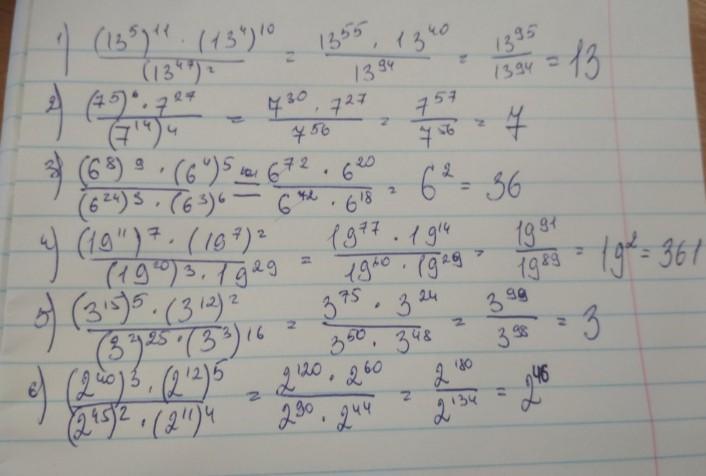 1) \frac{(13^5)^{11} \cdot (13^4)^{10}}{(13^{47})^2} = \frac{13^{55} \cdot 13^{40}}{13^{94}} = \frac{13^{95}}{13^{94}} = 13
2) \frac{(7^5)^6 \cdot 7^{27}}{(7^{14})^4} = \frac{7^{30} \cdot 7^{27}}{7^{56}} = \frac{7^{57}}{7^{56}} = 7
3) \frac{(6^8)^9 \cdot (6^4)^5}{(6^{24})^3 \cdot (6^3)^6} = \frac{6^{72} \cdot 6^{20}}{6^{72} \cdot 6^{18}} = 6^2 = 36
4) \frac{(19^{11})^7 \cdot (19^7)^2}{(19^{20})^3 \cdot 19^{29}} = \frac{19^{77} \cdot 19^{14}}{19^{60} \cdot 19^{29}} = \frac{19^{91}}{19^{89}} = 19^2 = 361
5) \frac{(3^{15})^5 \cdot (3^{12})^2}{(3^2)^{25} \cdot (3^3)^{16}} = \frac{3^{75} \cdot 3^{24}}{3^{50} \cdot 3^{48}} = \frac{3^{99}}{3^{98}} = 3
6) \frac{(2^{40})^3 \cdot (2^{12})^5}{(2^{45})^2 \cdot (2^{11})^4} = \frac{2^{120} \cdot 2^{60}}{2^{90} \cdot 2^{44}} = \frac{2^{180}}{2^{134}} = 2^{46}